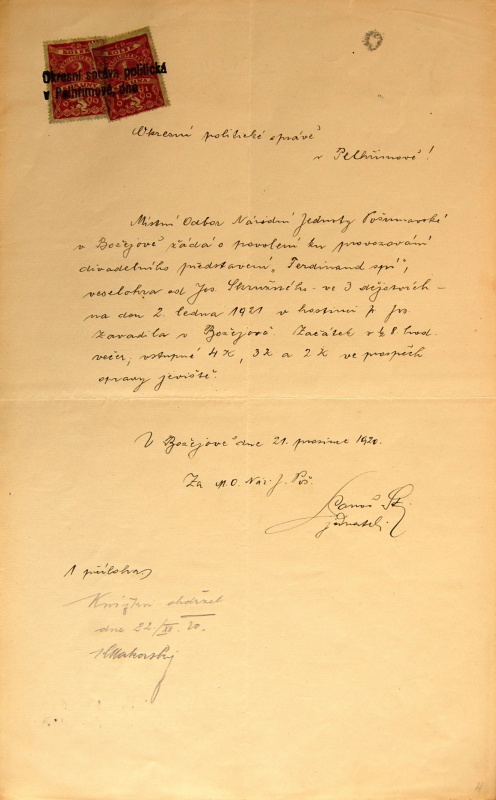 Okresní správa politická
v Pelhřimově, dne
Okresní politické správě
v Pelhřimově!
Místní Odbor Národní Jednoty Pošumavské
v Božejově žádá o povolení ku provozování
divadelního představení „Ferdinand spí",
veselohra od Jos. Skružného ve 3 dějstvích -
na den 2. ledna 1921 v hostinci p. Jos.
Zavadila v Božejově. Začátek v ½ 8 hod.
večer, vstupné 4 K, 3 K a 2 K ve prospěch
opravy jeviště.
V Božejově dne 21. prosince 1920.
Za M. O. Nár. J. Poš.
jednatel.
1 příloha
Knížku obdržel
dne 22/XII. 20.